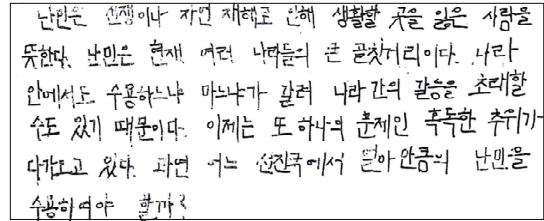 난민은 전쟁이나 자연 재해로 인해 생활할 곳을 잃은 사람을
뜻한다. 난민은 현재 여러 나라들의 큰 골칫거리이다. 나라
안에서도 수용하느냐 마느냐가 갈려 나라 간의 갈등을 초래할
수도 있기 때문이다. 이제는 또 하나의 문제인 혹독한 추위가
다가오고 있다. 과연 어느 선진국에서 얼마만큼의 난민을
수용하여야 할까?